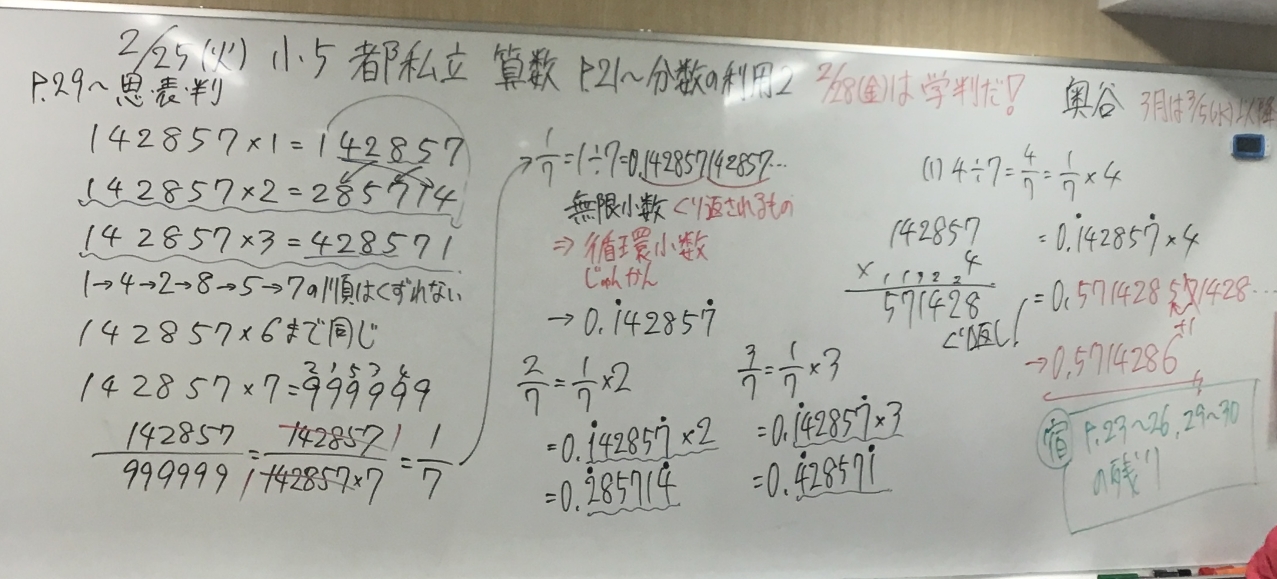 2/25(火) 小5 都私立 算数 P.21～分数の利用2 2/28(金)は学判だ! 奥谷 3月は3/5(水)以降
P.29～思・表・判
142857×1=142857
142857×2=285714
142857×3=428571
1→4→2→8→5→7の順はくずれない
142857×6まで同じ
142857×7=999999
142857/999999=142857/142857×7=1/7
1/7=1÷7=0.142857142857…
無限小数 くり返されるもの
⇒循環小数
じゅんかん
→0.1̇42857̇
2/7=1/7×2
=0.1̇42857̇×2
=0.2̇85714̇
3/7=1/7×3
=0.1̇42857̇×3
=0.4̇28571̇
(1) 4÷7=4/7=1/7×4
=0.1̇42857̇×4
142857
× 4
571428
くり返し!
=0.571428571428…
+1
→0.5714286
宿 P.23～26,29～30
の残り